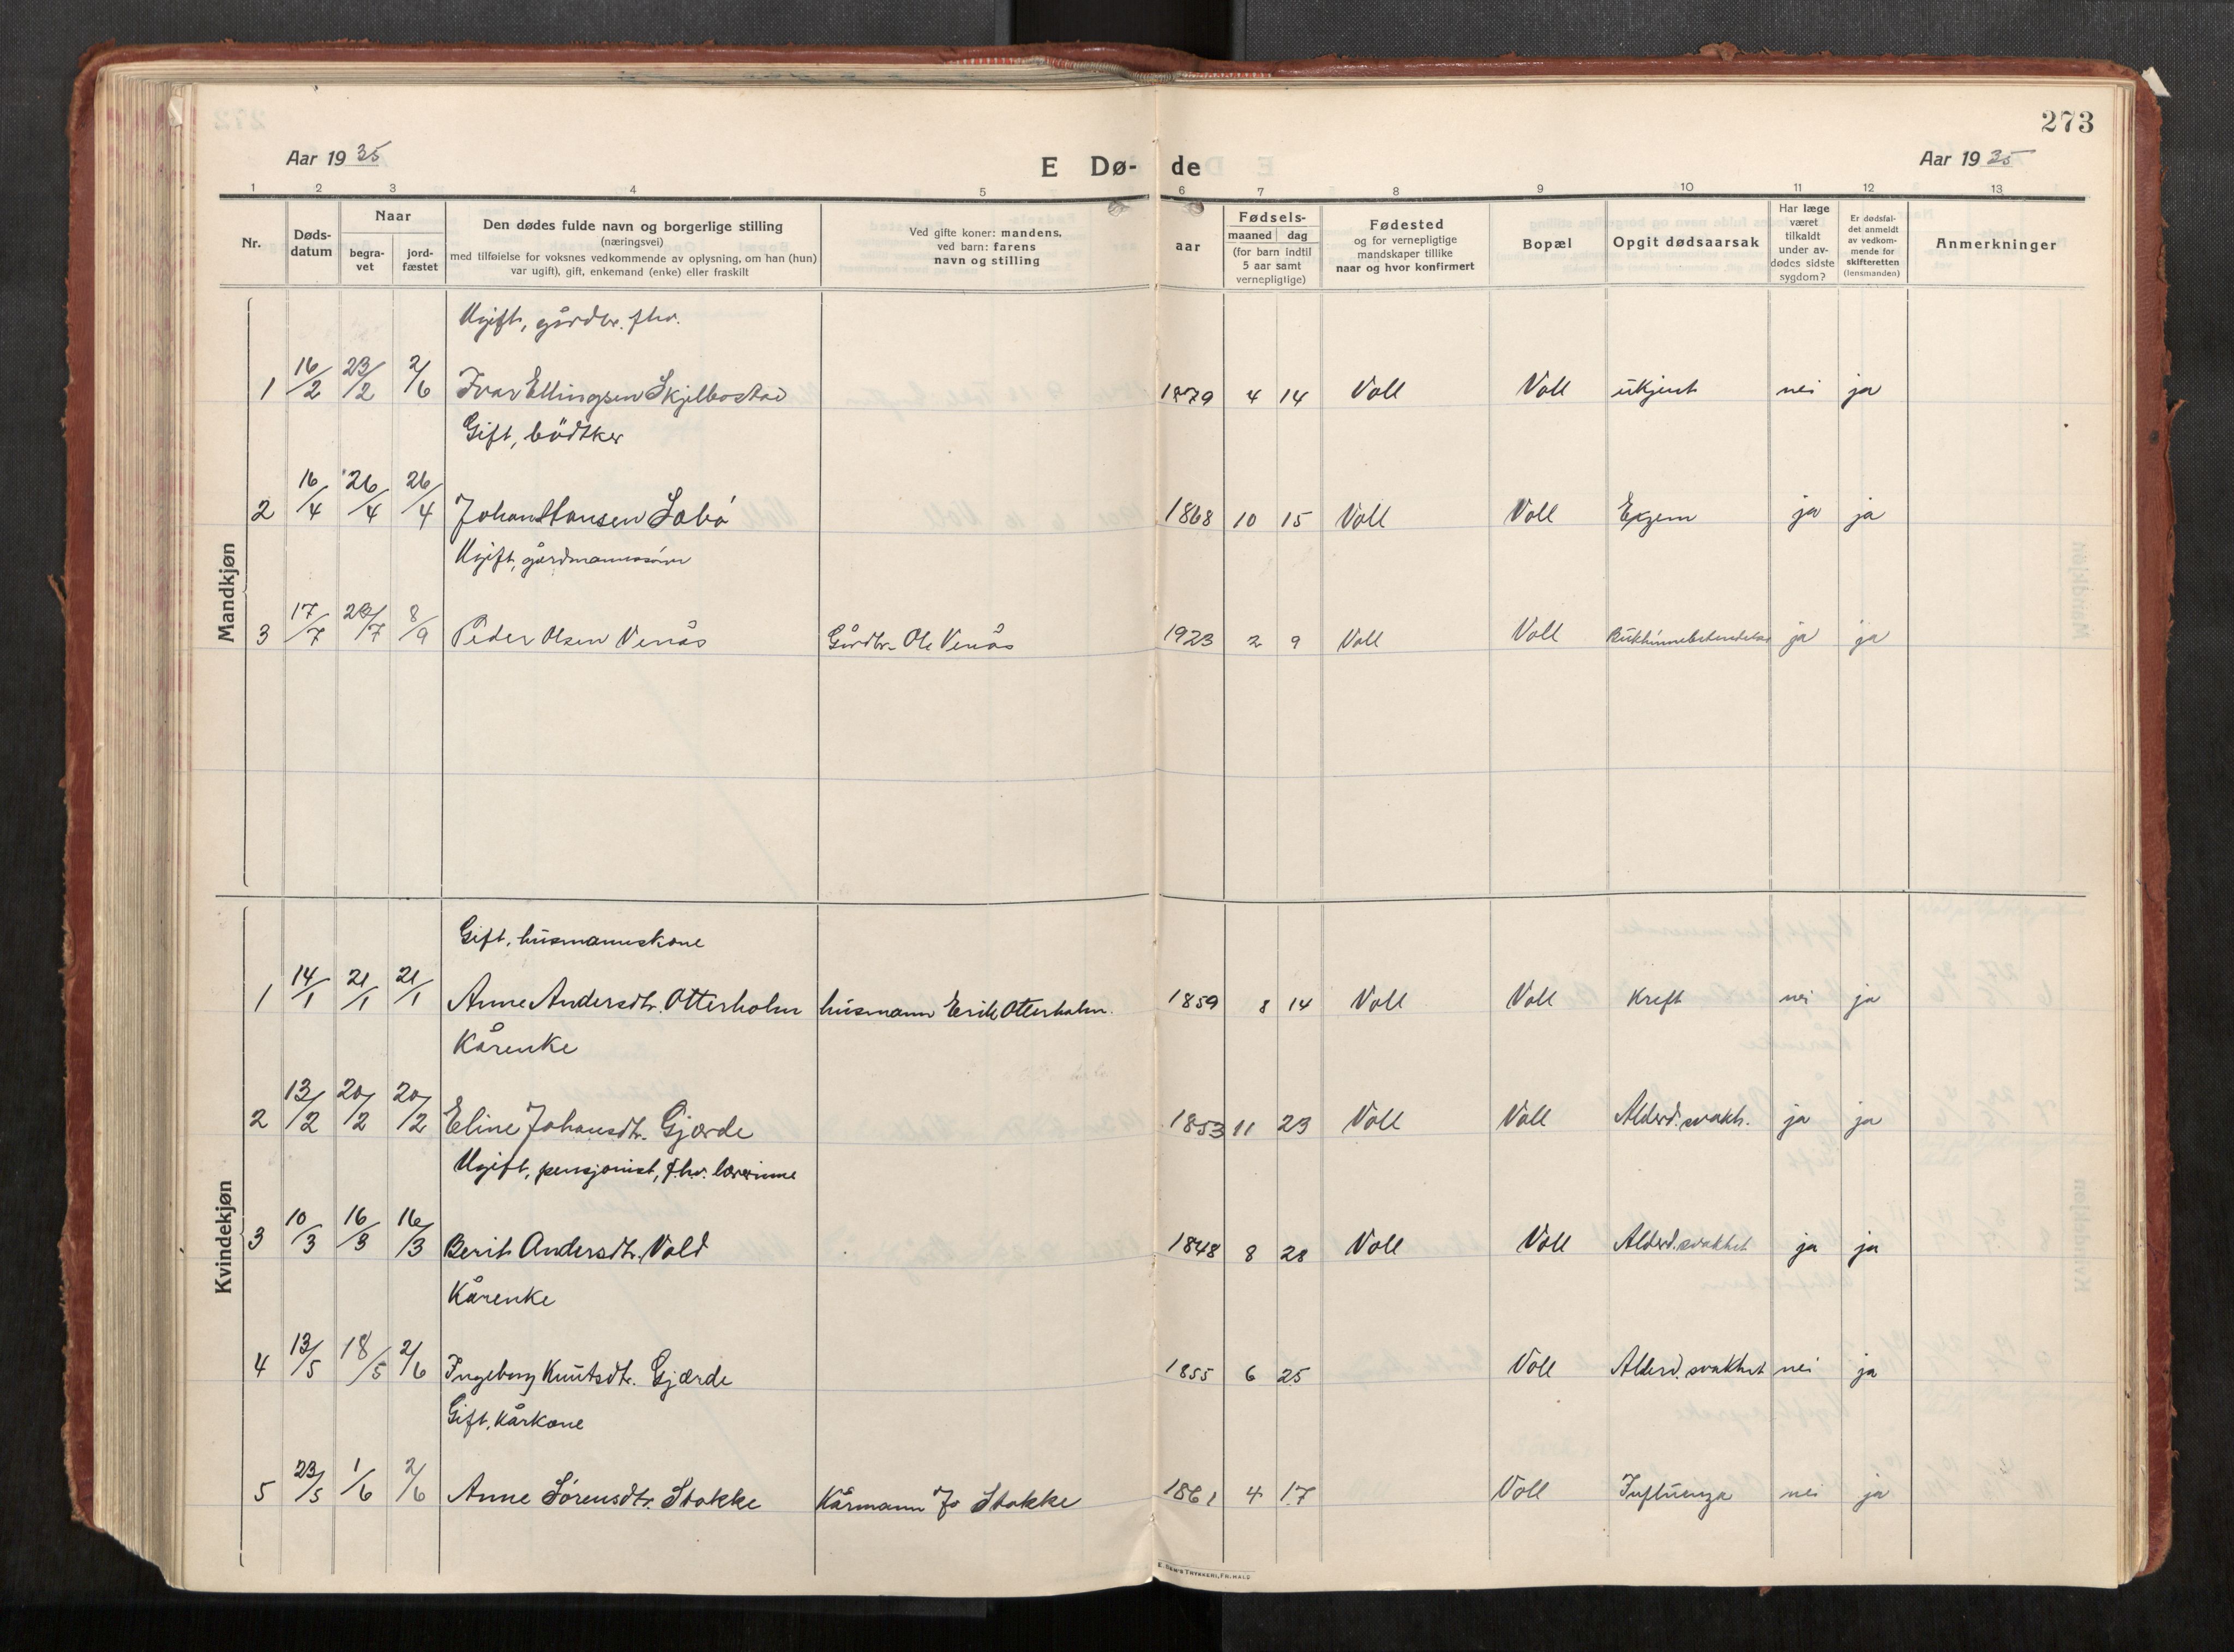 273
Aar 1935
E Dø- de
Aar 1935
1 2 3 4 5 6 7 8 9 10 11 12 13
Nr.
Døds-
datum
Naar
begra-
vet
jord-
fæstet
Den dødes fulde navn og borgerlige stilling
(næringsvei)
med tilføielse for voksnes vedkommende av oplysning, om han (hun)
var ugift), gift, enkemand (enke) eller fraskilt
Ved gifte koner: mandens,
ved barn: farens
navn og stilling
aar
Fødsels-
maaned dag
(for barn indtil
5 aar samt
vernepligtige)
Fødested
og for vernepligtige
mandskaper tillike
naar og hvor konfirmert
Bopæl
Opgit dødsaarsak
Har læge
været
tilkaldt
under av-
dødes sidste
sygdom?
Er dødsfal-
det anmeldt
av vedkom-
mende for
skifteretten
(lensmanden)
Anmerkninger
Mandkjøn
Ugift, gårdbr. fhv.
1 16/2 23/2 2/6 Ivar Ellingsen Skjelbostad 1879 4 14 Voll Voll ukjent nei ja
Gift, bödtker
2 16/4 26/4 26/4 Johan Hansen Sabö 1868 10 15 Voll Voll Exzem ja ja
Ugift, gårdmannssönn
3 17/7 28/7 8/9 Peder Olsen Venås Gårdbr. Ole Venås 1923 2 9 Voll Voll Bukhinnebetendelse ja ja
Kvindekjøn
Gift, husmannskone
1 14/1 21/1 21/1 Anne Andersdtr. Otterholm husmann Erik Otterholm. 1859 8 14 Voll Voll Kreft nei ja
Kårenke
2 13/2 20/2 20/2 Eline Johansdtr. Gjærde 1853 11 23 Voll Voll Alderd. svakh. ja ja
Ugift, pensjonist, f.hv. lærerinne
3 10/3 16/3 16/3 Berit Andersdtr. Vold 1848 8 28 Voll Voll Alderd. svakhet ja ja
Kårenke
4 13/5 18/5 2/6 Ingeborg Knutsdtr. Gjærde 1855 6 25 Voll Alderd. svakhet nei ja
Gift, Kårkone
5 23/5 1/6 2/6 Anne Sörensdtr. Stokke Kårmann Jo Stokke 1861 4 17 Voll Influenza nei ja